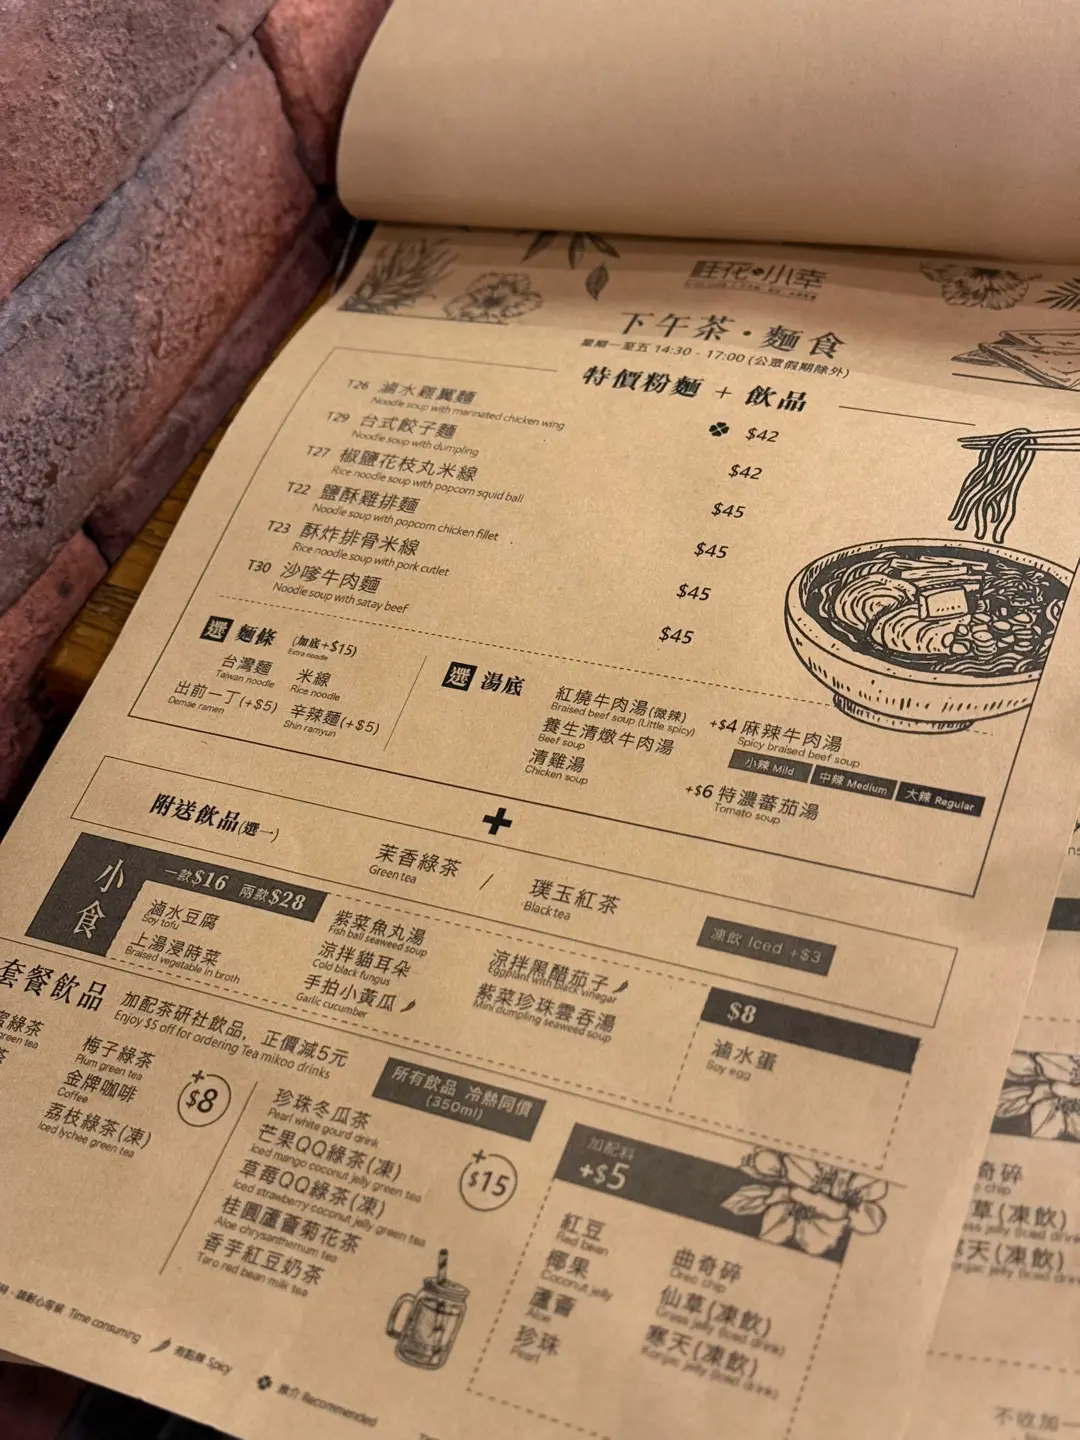 桂花•小幸
下午茶・麵食
星期一至五 14:30 - 17:00 (公眾假期除外)
特價粉麵 + 飲品
T26 滷水雞翼麵 $42
Noodle soup with marinated chicken wing
T29 台式餃子麵 $42
Noodle soup with dumpling
T27 椒鹽花枝丸米線 $45
Rice noodle soup with popcorn squid ball
T22 鹽酥雞排麵 $45
Noodle soup with popcorn chicken fillet
T23 酥炸排骨米線 $45
Rice noodle soup with pork cutlet
T30 沙嗲牛肉麵 $45
Noodle soup with satay beef
選 麵條 (加底+$15)
Extra noodle
台灣麵 米線
Taiwan noodle Rice noodle
出前一丁(+$5) 辛辣麵(+$5)
Demae ramen Shin ramyun
選 湯底
紅燒牛肉湯(微辣)
Braised beef soup (Little spicy)
養生清燉牛肉湯
Beef soup
清雞湯
Chicken soup
+$4 麻辣牛肉湯
Spicy braised beef soup
小辣 Mild 中辣 Medium 大辣 Regular
+$6 特濃蕃茄湯
Tomato soup
+
附送飲品(選一)
茉香綠茶 / 璞玉紅茶
Green tea Black tea
凍飲 Iced +$3
小食
一款$16 兩款$28
滷水豆腐
Soy tofu
上湯浸時菜
Braised vegetable in broth
紫菜魚丸湯
Fish ball seaweed soup
涼拌貓耳朵
Cold black fungus
手拍小黃瓜
Garlic cucumber
涼拌黑醋茄子
Eggplant with black vinegar
紫菜珍珠雲吞湯
Mini dumpling seaweed soup
$8
滷水蛋
Soy egg
套餐飲品
加配茶研社飲品，正價減5元
Enjoy $5 off for ordering Tea mikoo drinks
所有飲品 冷熱同價
(350ml)
綠茶
green tea
茶
梅子綠茶
Plum green tea
金牌咖啡
Coffee
荔枝綠茶(凍)
Iced lychee green tea
+$8
珍珠冬瓜茶
Pearl white gourd drink
芒果QQ綠茶(凍)
Iced mango coconut jelly green tea
草莓QQ綠茶(凍)
Iced strawberry coconut jelly green tea
桂圓蘆薈菊花茶
Aloe chrysanthemum tea
香芋紅豆奶茶
Taro red bean milk tea
+$15
加配料
+$5
紅豆
Red bean
椰果
Coconut jelly
蘆薈
Aloe
珍珠
Pearl
曲奇碎
Oreo chip
仙草(凍飲)
Grass jelly (Iced drink)
寒天(凍飲)
Konjac jelly (Iced drink)
請耐心等候 Time consuming
有點辣 Spicy
推介 Recommended
奇碎
chip
草(凍飲)
jelly (Iced drink)
天(凍飲)
jelly (Iced drink)
不收加一